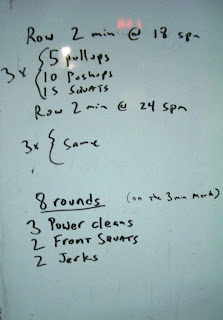 Row 2 min @ 18 spm
3x { 5 pullups
10 Pushups
15 Squats
Row 2 min @ 24 spm
3x { Same
8 rounds (on the 3 min mark)
3 Power cleans
2 Front Squats
2 Jerks